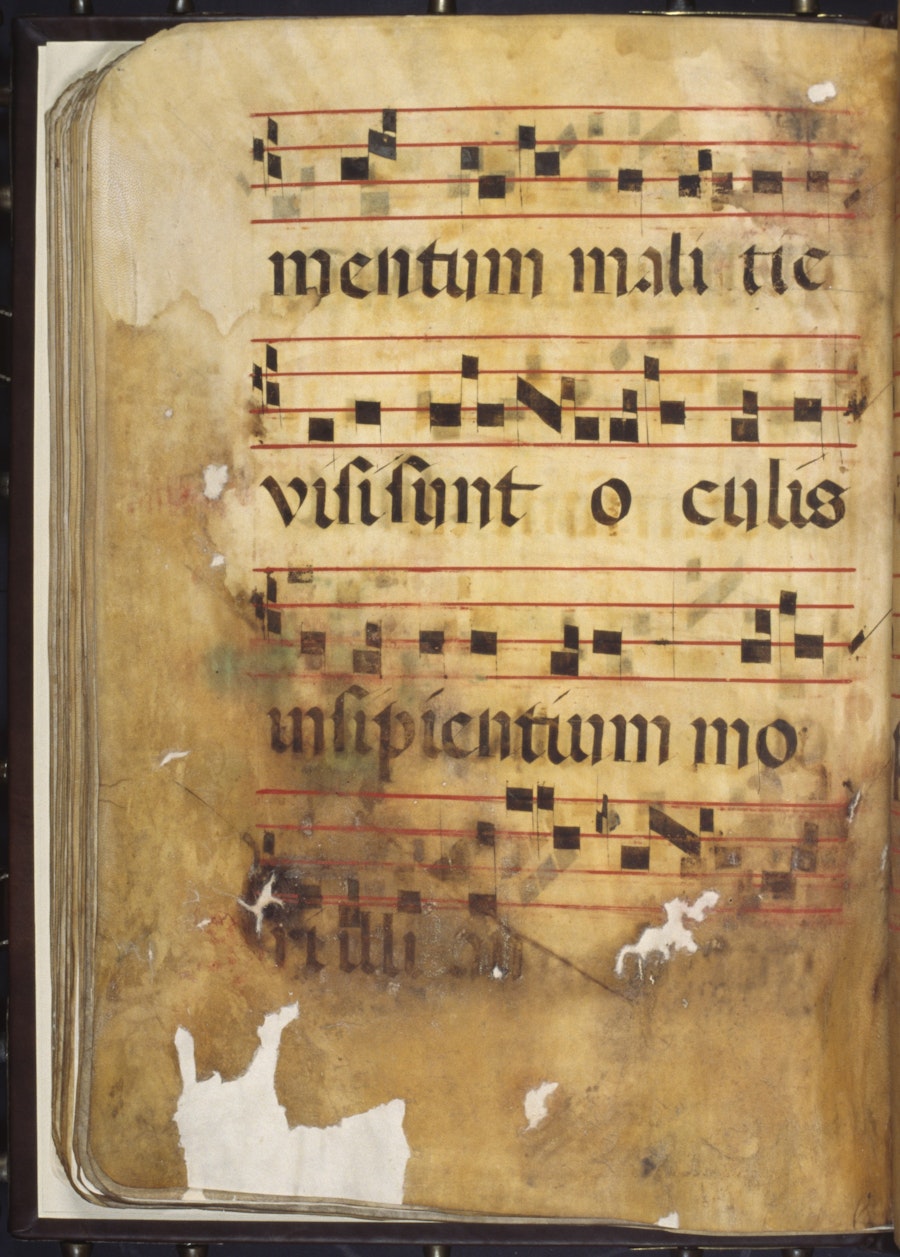 mentum mali tie
visi sunt o culis
insipientium mo
ri illi au